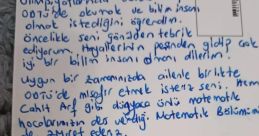 ODTÜ'de okumak ve bilim insanı
olmak istediğini öğrendim.
Öncelikle seni gönülden tebrik
ediyorum. Hayallerinin peşinden gidip çok
iyi bir bilim insanı olmanı dilerim.
Uygun bir zamanınızda ailenle birlikte
ODTÜ'de misafir etmek isteriz seni. Hem
Cahit Arf gibi dünyaca ünlü matematik
hocalarımızın ders verdiği Matematik Bölümünü
de ziyaret ederiz.